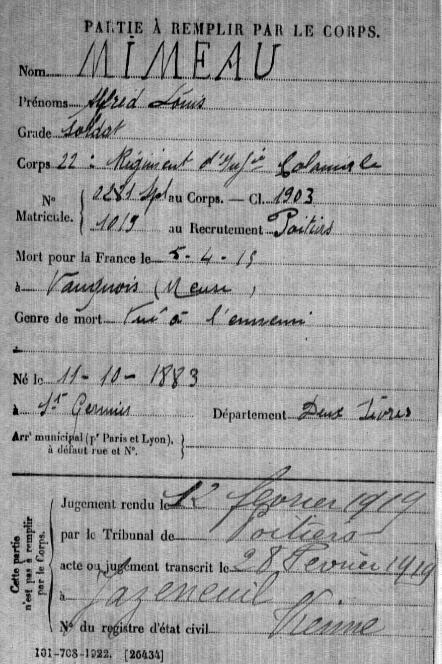 PARTIE À REMPLIR PAR LE CORPS.
Nom MIMEAU
Prénoms Alfred Louis
Grade Soldat
Corps 22e Régiment d'Infie Coloniale
N° Matricule. { 0281 Spl au Corps. — Cl. 1903
1019 au Recrutement Poitiers
Mort pour la France le 5-4-15
à Vauquois (Meuse)
Genre de mort Tué à l'ennemi
Né le 11-10-1883
à St Germier Département Deux Sèvres
Arrt municipal (pr Paris et Lyon), à défaut rue et N°. }
Cette partie n'est pas à remplir par le Corps.
Jugement rendu le 12 février 1919
par le Tribunal de Poitiers
acte ou jugement transcrit le 28 Février 1919
à Jazeneuil
N° du registre d'état civil Vienne
101-708-1922. [26434]